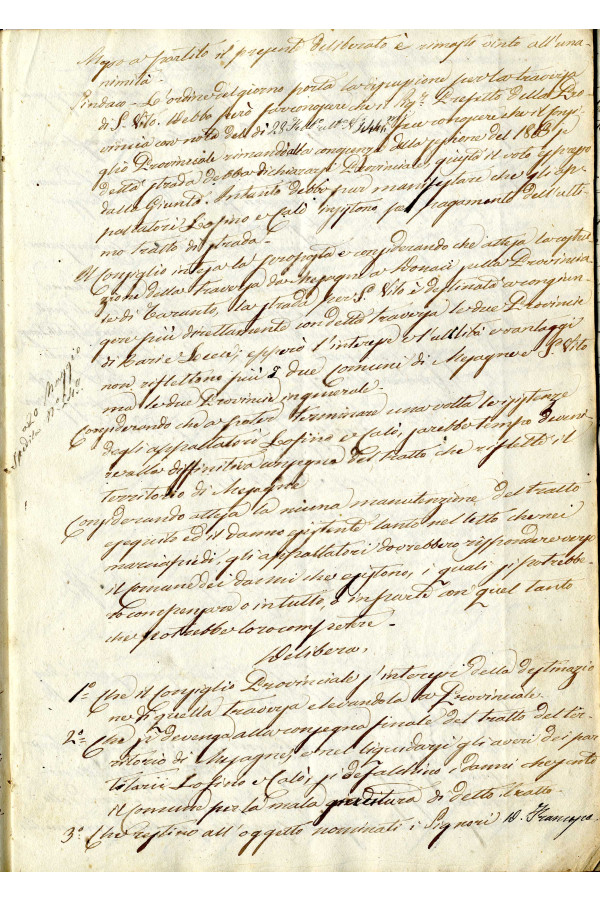 Messo a partito il presente deliberato è rimasto vinto all'una-
nimità.
Sindaco - L'ordine del giorno porta la discussione per la traversa
di S. Vito. Debbo però soggiungere che il Sig.r Prefetto della Pro-
vincia con nota del dì 28 che il Consi-
glio Provinciale rimandò alla sessione del 1863 se
detta strada debba dichiararsi Provinciale giusta il voto espresso
dalla Giunta. Intanto debbo pur manifestare che gli ap-
paltatori Lofino e Calò insistono pel pagamento dell'ulti-
mo tratto di strada.
Il Consiglio intesa la proposta e considerando che attesa la costru-
zione della traversa da Mesagne a sulla Provincia-
le di Taranto, la strada per S. Vito è destinata a congiun-
gere più direttamente con detta traversa le due Provincie
di Bari e Lecce, epperò l'interesse e l'utilità e vantaggi
non riflettono più i due Comuni di Mesagne e S. Vito
ma le due Provincie in generale.
Considerando che a poter terminare una volta le insistenze
degli appaltatori Lofino e Calò, sarebbe tempo deveni-
re alla diffinitiva consegna del tratto che riflette il
territorio di Mesagne
Considerando attesa la niuna manutenzione del tratto
eseguito ed il danno esistente tanto nel letto che nei
marciapiedi, gli appaltatori dovrebbero rispondere verso
il Comune dei danni che esistono, i quali si potrebbe-
ro compensare o in tutto, o in parte con quel tanto
che potrebbe loro competere.
Delibera,
1.° Che il Consiglio Provinciale s'interessi della destinazio
ne di quella traversa elevandola a Provinciale.
2.° Che si devenga alla consegna finale del tratto del ter-
ritorio di Mesagne, e nel liquidarsi gli averi dei par-
titarii Lofino e Calò, si defalchino i danni che sente
il Comune per la mala di detto tratto.
3.° Che restino all'oggetto nominati i Signori D. Francesco
a 20 Maggio
Spedita N.° 240